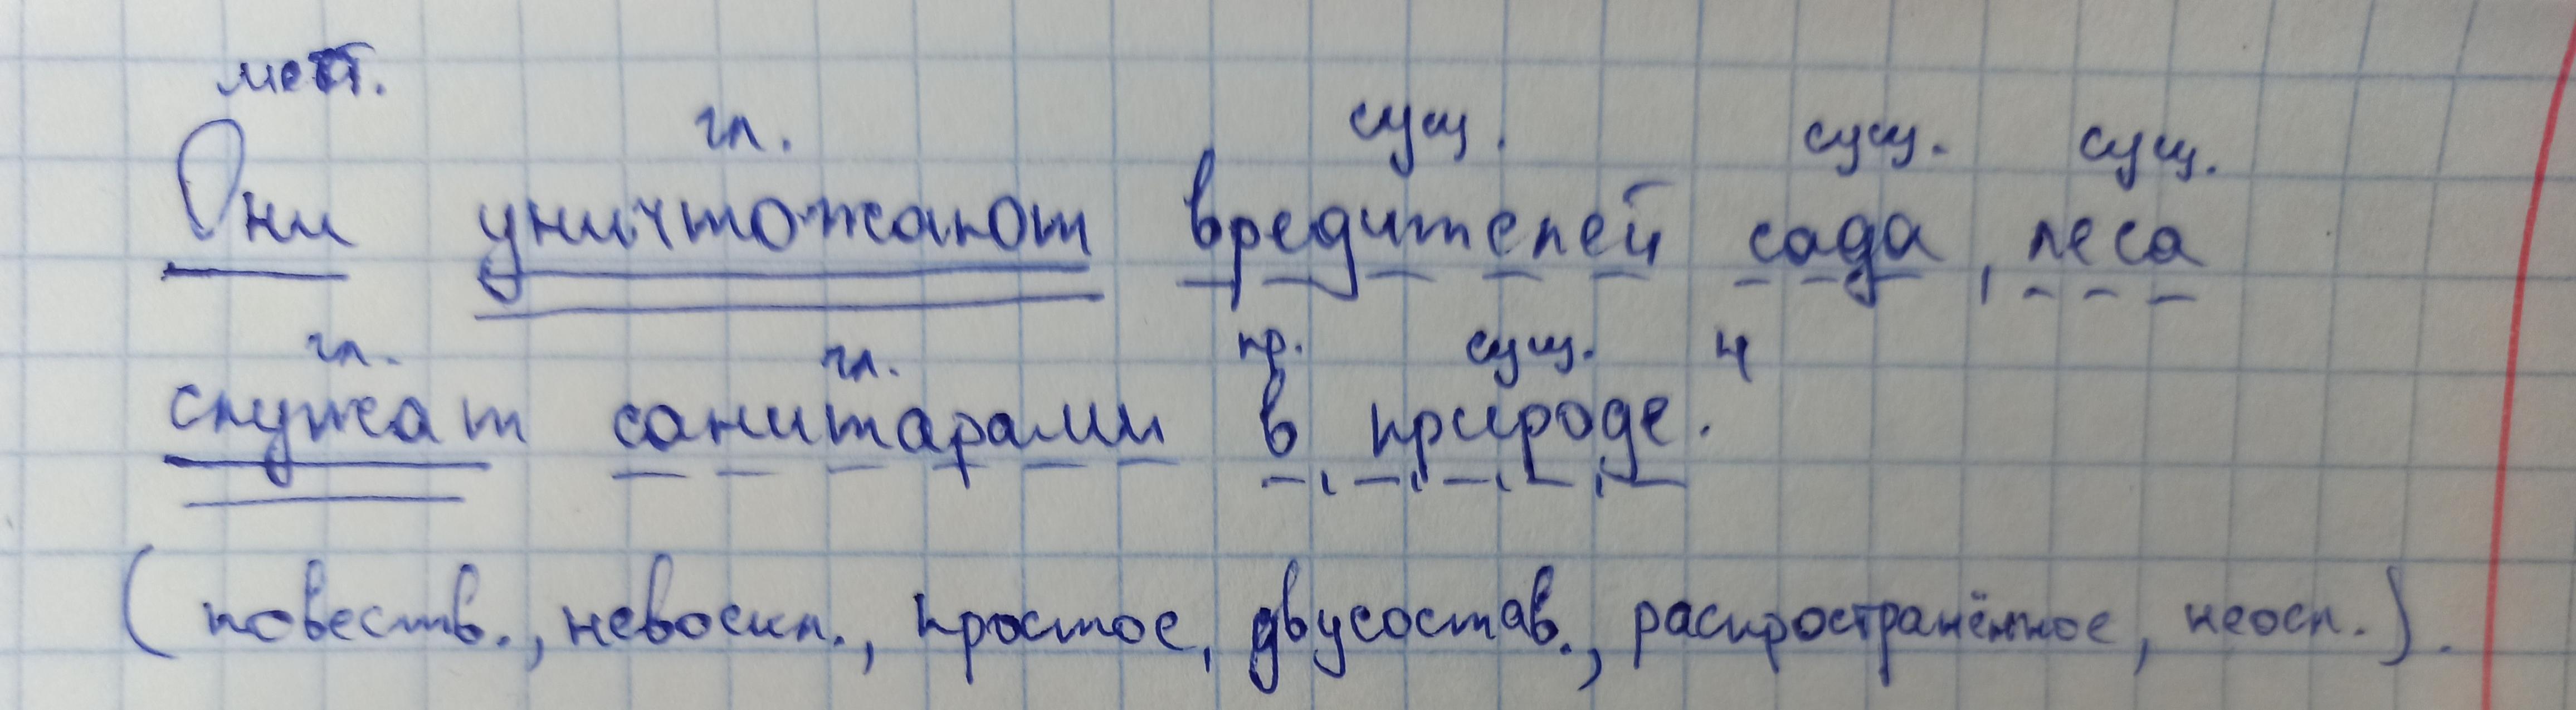 мест. гл. сущ. сущ. сущ.
Они уничтожают вредителей сада, леса
гл. гл. пр. сущ. 4
служат санитарами в природе.
(повеств., невоскл., простое, двусостав., распространённое, неосл.).